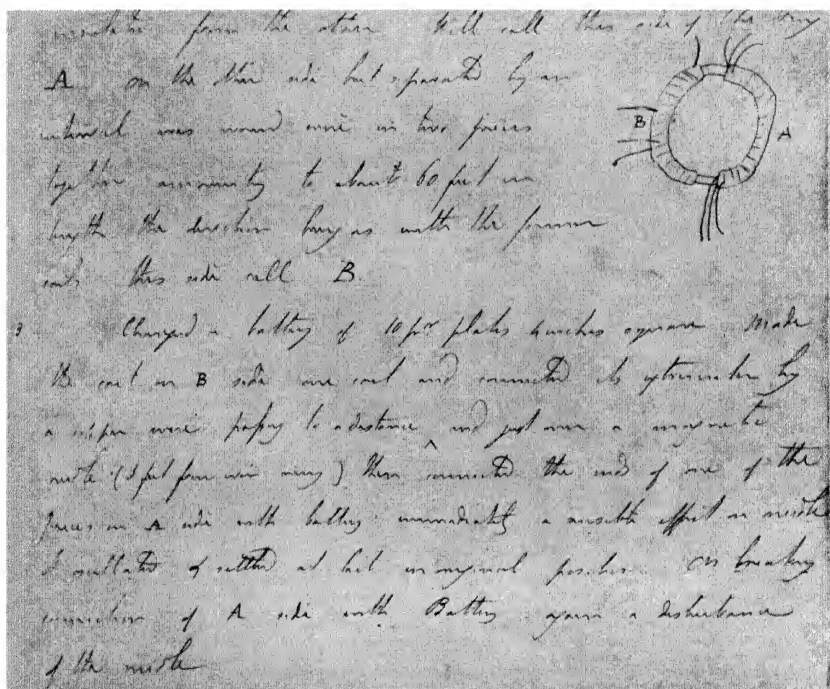 insulated from the other. Will call this side of the ring
A. on the other side but separated by an
interval was wound wire in two pieces
together amounting to about 60 feet in
length the direction being as with the former
coils this side call B.
B
A
3 Charged a battery of 10 pr plates 4 inches square. Made
the coil on B side one coil and connected its extremities by
a copper wire passing to a distance and just over a magnetic
needle (3 feet from wire ring) then connected the ends of one of the
pieces on A side with battery. immediately a sensible effect on needle
It oscillated & settled at last in original position. On breaking
connection of A side with Battery again a disturbance
of the needle